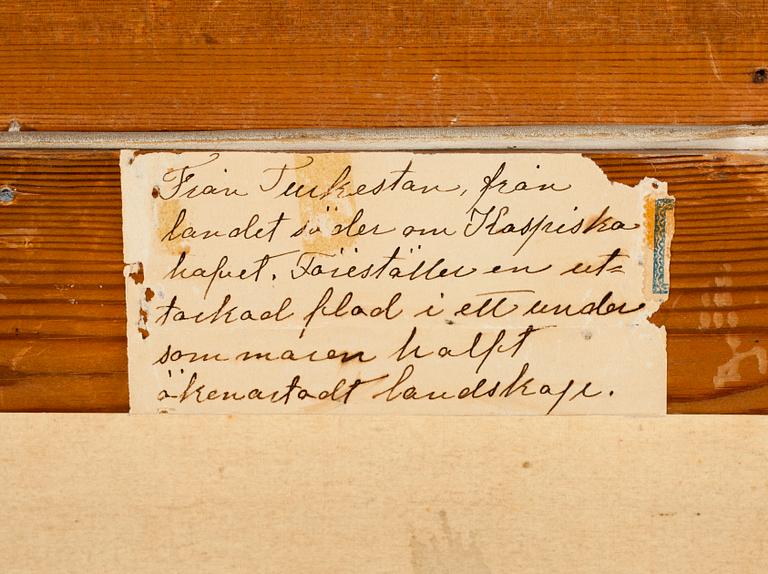 Från Turkestan, från
landet söder om Kaspiska
hafvet. Föreställer en ut=
torkad flod i ett under
sommaren halft
ökenartadt landskap.